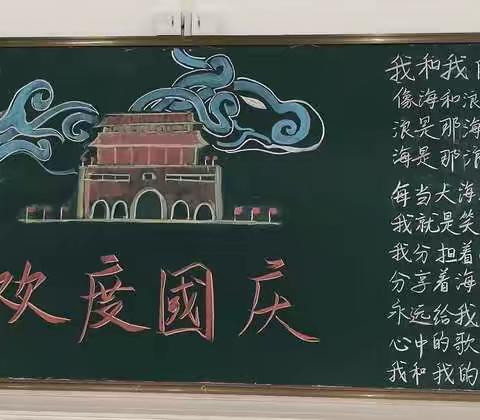 欢度國庆
我和我
像海和浪
浪是那海
海是那浪
每当大海
我就是笑
我分担着
分享着海
永远给我
心中的歌
我和我的